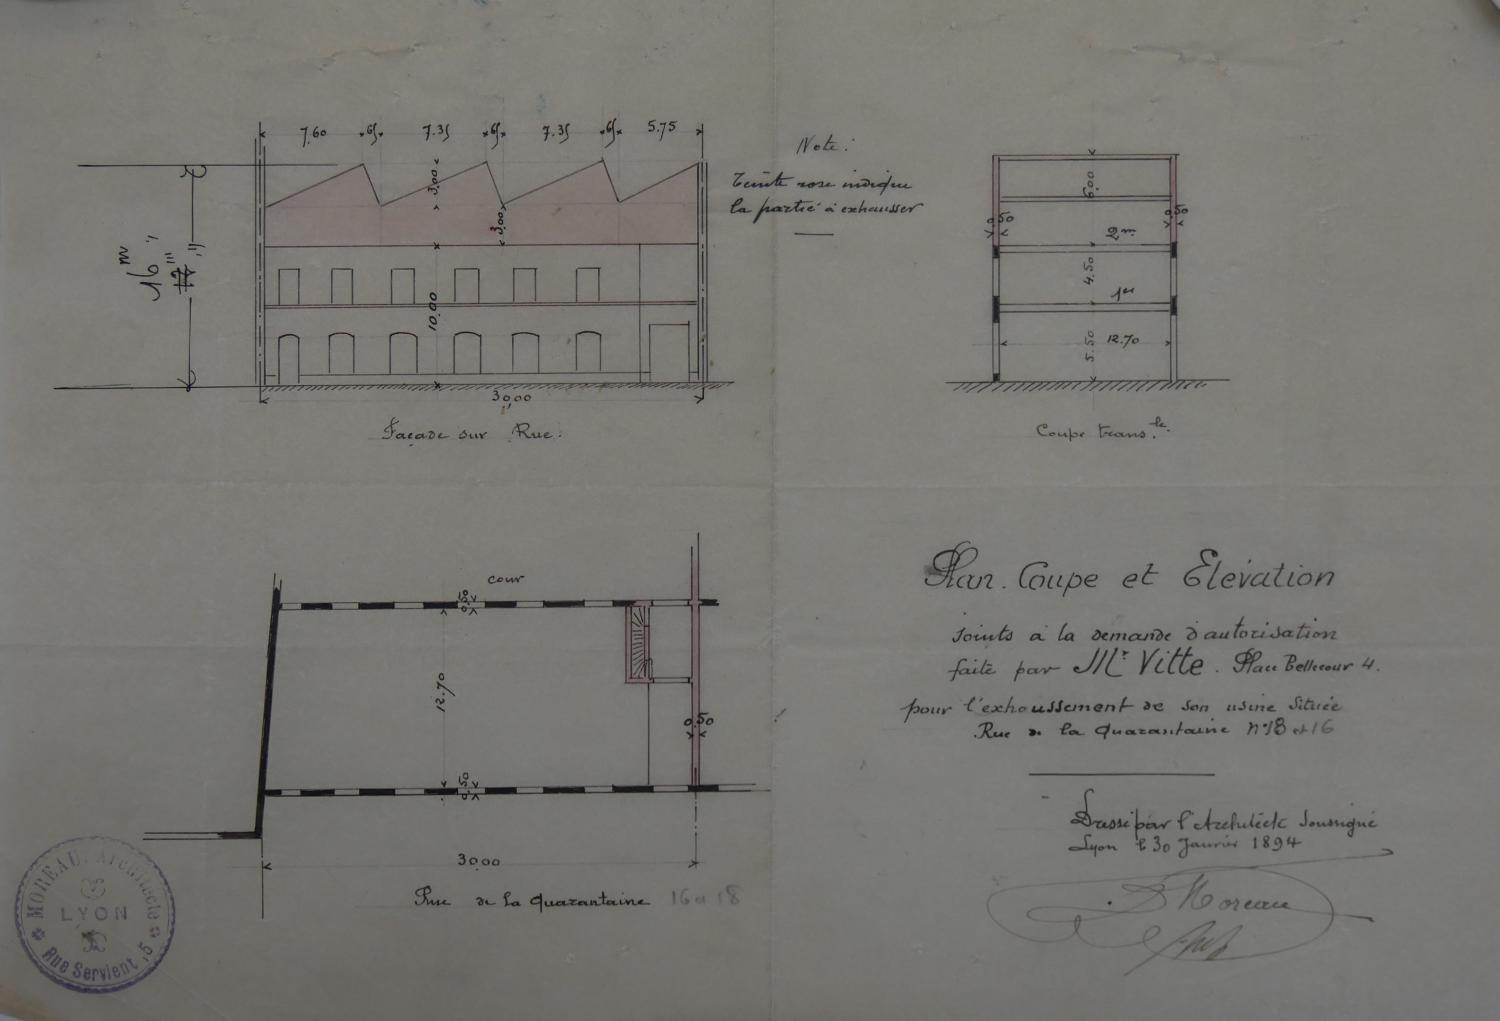 7.60 65 7.35 65 7.35 65 5.75
3,00
3,00
16m
10,00
30,00
Façade sur Rue.
Note:
Teinte rose indique
la partie à exhausser
6.00
0.50 0.50
2e m.
4.50
1er
5.50 12.70
Coupe transle.
cour
0.50
12.70
0.50
0.50
30.00
Rue de la Quarantaine 16 et 18
Plan. Coupe et Elévation
Joints à la demande d'autorisation
faite par Mr Vitte. Place Bellecour 4.
pour l'exhaussement de son usine Située
Rue de la Quarantaine n°18 et 16
Dressé par l'Architecte Soussigné
Lyon le 30 Janvier 1894
Moreau
MOREAU, Architecte
LYON
Rue Servient, 5